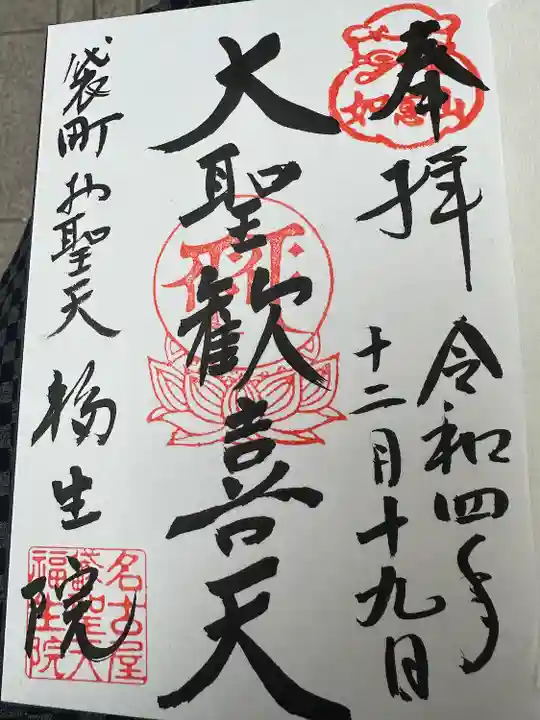 奉拝
如意山
令和四年
十二月十九日
大聖歓喜天
袋町お聖天
福生院
名古屋
袋聖天
福生院